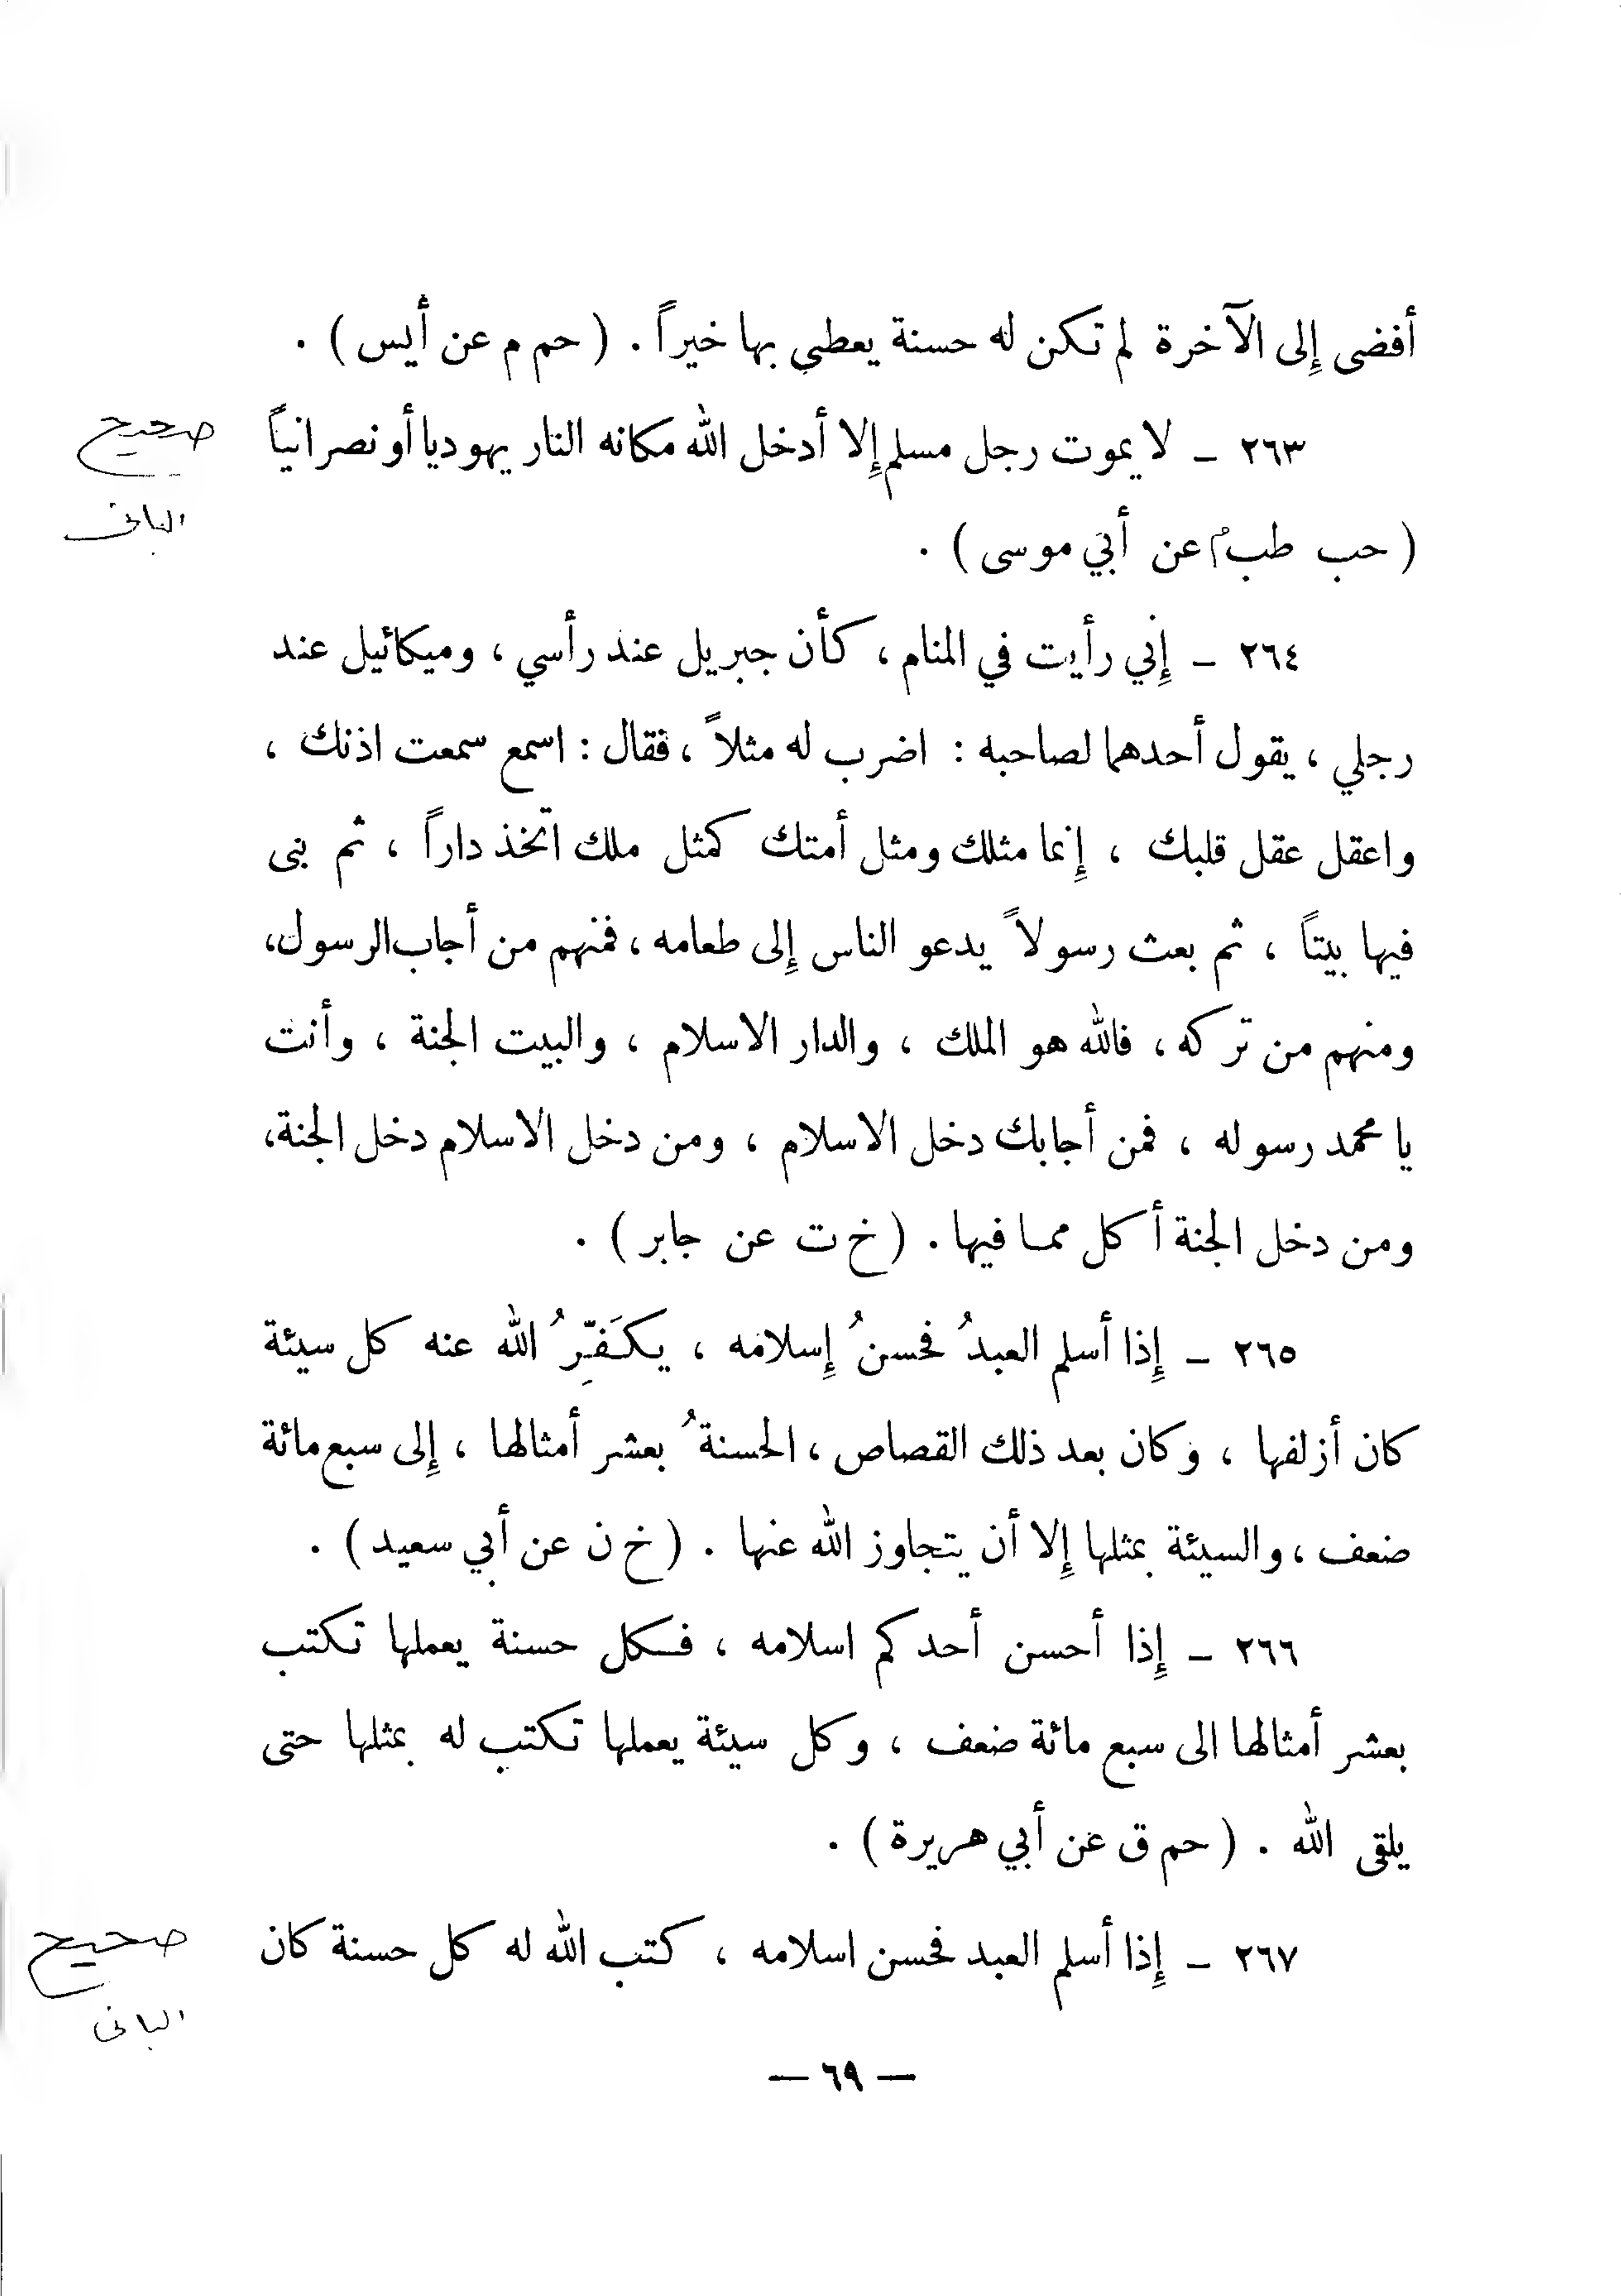 أفضى إِلى الآخرة لم تكن له حسنة يعطي بها خيراً . ( حم م عن أيس ) .
٢٦٣ ـ لا يموت رجل مسلم إِلا أدخل الله مكانه النار يهوديا أو نصرانياً
صحيح
البانى
( حب طب م عن أبي موسى ) .
٢٦٤ ـ إِني رأيت في المنام ، كأن جبريل عند رأسي ، وميكائيل عند
رجلي ، يقول أحدهما لصاحبه : اضرب له مثلاً ، فقال : اسمع سمعت اذنك ،
واعقل عقل قلبك ، إِنما مثلك ومثل أمتك كمثل ملك اتخذ داراً ، ثم بنى
فيها بيتاً ، ثم بعث رسولاً يدعو الناس إِلى طعامه ، فمنهم من أجاب الرسول،
ومنهم من تركه ، فالله هو الملك ، والدار الاسلام ، والبيت الجنة ، وأنت
يا محمد رسوله ، فمن أجابك دخل الاسلام ، ومن دخل الاسلام دخل الجنة،
ومن دخل الجنة أكل مما فيها . ( خ ت عن جابر ) .
٢٦٥ ـ إِذا أسلم العبدُ فحسنُ إِسلامه ، يكَفِّرُ الله عنه كل سيئة
كان أزلفها ، وكان بعد ذلك القصاص ، الحسنةُ بعشر أمثالها ، إِلى سبع مائة
ضعف ، والسيئة بمثلها إِلا أن يتجاوز الله عنها . ( خ ن عن أبي سعيد ) .
٢٦٦ ـ إِذا أحسن أحدكم اسلامه ، فكل حسنة يعملها تكتب
بعشر أمثالها الى سبع مائة ضعف ، وكل سيئة يعملها تكتب له بمثلها حتى
يلقى الله . ( حم ق عن أبي هريرة ) .
٢٦٧ ـ إِذا أسلم العبد فحسن اسلامه ، كتب الله له كل حسنة كان
صحيح
البانى
— ٦٩ —